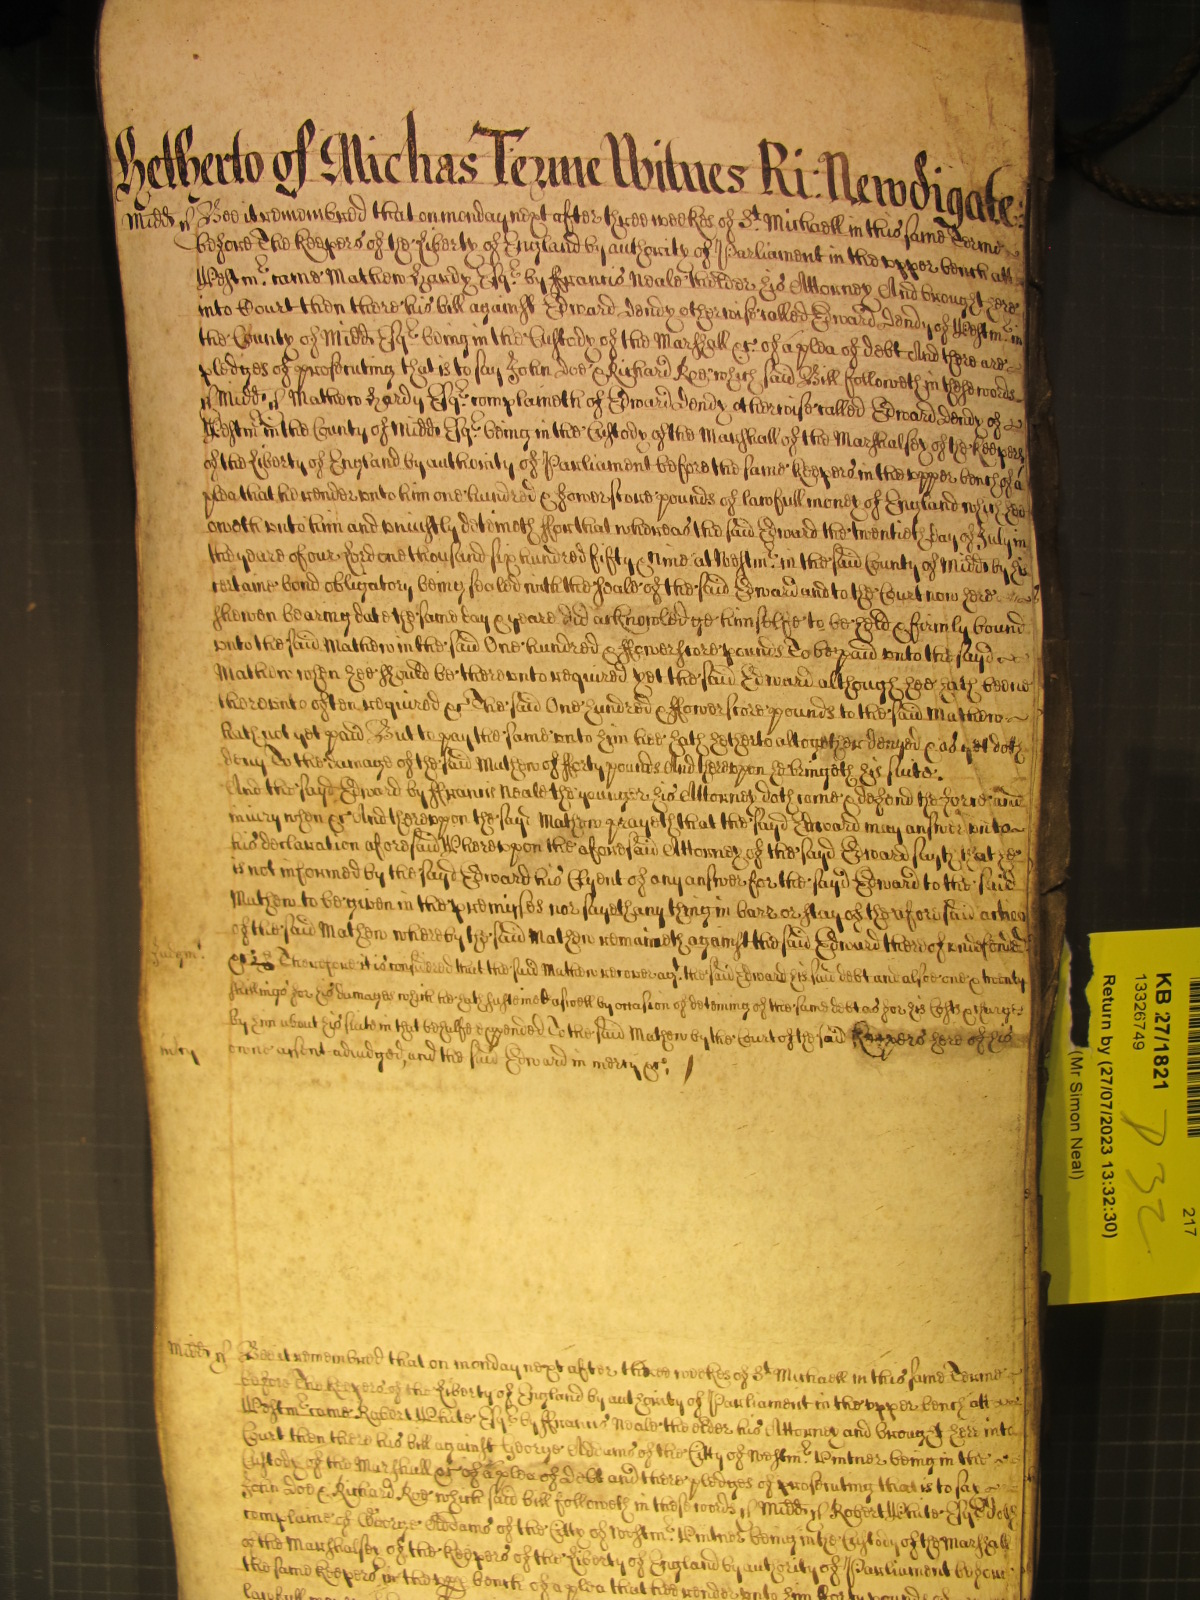 Hetherto of Michas Terme Witnes Ri: Newdigate
Midds ss Bee it remembred that on monday next after three weekes of St Michaell in this same Terme
before The Keepers of the Liberty of England by authority of Parliament in the upper bench att
Westmr came Mathew Hardy Esqr by Francis Neale the elder his Attorney And brought here
into Court then there his bill against Edward Dendy otherwise called Edward Dendy of Westmr in
the County of Midds Esqr being in the Custody of the Marshall &c of a plea of debt And there are
pledges of prosecuting that is to say John Doe & Richard Roe which said Bill followeth in these words
ss Midds ss Mathew Hardy Esqr complaineth of Edward Dendy otherwise called Edward Dendy of
Westmr in the County of Midds Esqr being in the Custody of the Marshall of the Marshalsey of the Keepers
of the Liberty of England by authority of Parliament before the same Keepers in the upper bench of a
plea that he render unto him one hundred & fowerscore pounds of lawfull money of England which hee
oweth unto him and uniustly deteineth For that whereas the said Edward the twentieth day of July in
the yeare of our Lord one thousand six hundred fifty & nine at Westmr in the said County of Midds by his
certaine bond obligatory being sealed with the seale of the said Edward and to the Court now here
shewen bearing date the same day & yeare did acknowledge himselfe to be held & firmly bound
unto the said Mathew in the said One hundred & fowerscore pounds To be paid unto the sayd
Mathew when hee should be thereunto required yet the said Edward although hee hath beene
thereunto often required &c The said One hundred & fowerscore pounds to the said Mathew
hath not yet paid But to pay the same unto him hee hath hetherto altogether denyed & as yet doth
deny To the damage of the said Mathew of forty pounds And hereupon he bringeth his suite.
And the sayd Edward by Francis Neale the younger his Attorney doth come & defend the force and
iniury when &c And thereuppon the sayd Mathew prayeth that the sayd Edward may answer unto
his declaration aforesaid Whereuppon the aforesaid Attorney of the sayd Edward sayth that he
is not informed by the sayd Edward his Clyent of any answer for the sayd Edward to the said
Mathew to be given in the premisses nor sayeth any thing in barr or stay of the aforesaid action
of the said Mathew whereby the said Mathew remaineth against the said Edward thereof undefended
Judgmt &c Therefore it is considered that the said Mathew recover agt the said Edward his said debt and alsoe one & twenty
shillings for his damages which he hath susteined aswell by occasion of deteining of the same debt as for his Costs & charges
by him about his suite in that behalfe expended To the said Mathew by the Court of the said Keepers here of his
mercy owne assent adiudged, and the said Edward in mercy &c.
Midds ss Bee it remembred that on monday next after three weekes of St Michaell in this same Terme
before The Keepers of the Liberty of England by authority of Parliament in the upper bench att
Westmr came Robert White Esqr by Francis Neale the elder his Attorney and brought here into
Court then there his bill against George Addams of the Citty of Westmr Vintner being in the
Custody of the Marshall &c of a plea of debt and there pledges of prosecuting that is to say
John Doe & Richard Roe which said bill followeth in these words ss Midds ss Robert White Esqr doth
complaine of George Addams of the Citty of Westmr Vintner being in the Custody of the Marshall
of the Marshalsey of the Keepers of the Liberty of England by authority of Parliament before
the same Keepers in the upper bench of a plea that hee render unto him forty pounds of
lawfull
KB 27/1821
13326749
Return by (27/07/2023 13:32:30)
(Mr Simon Neal)
217
P 32